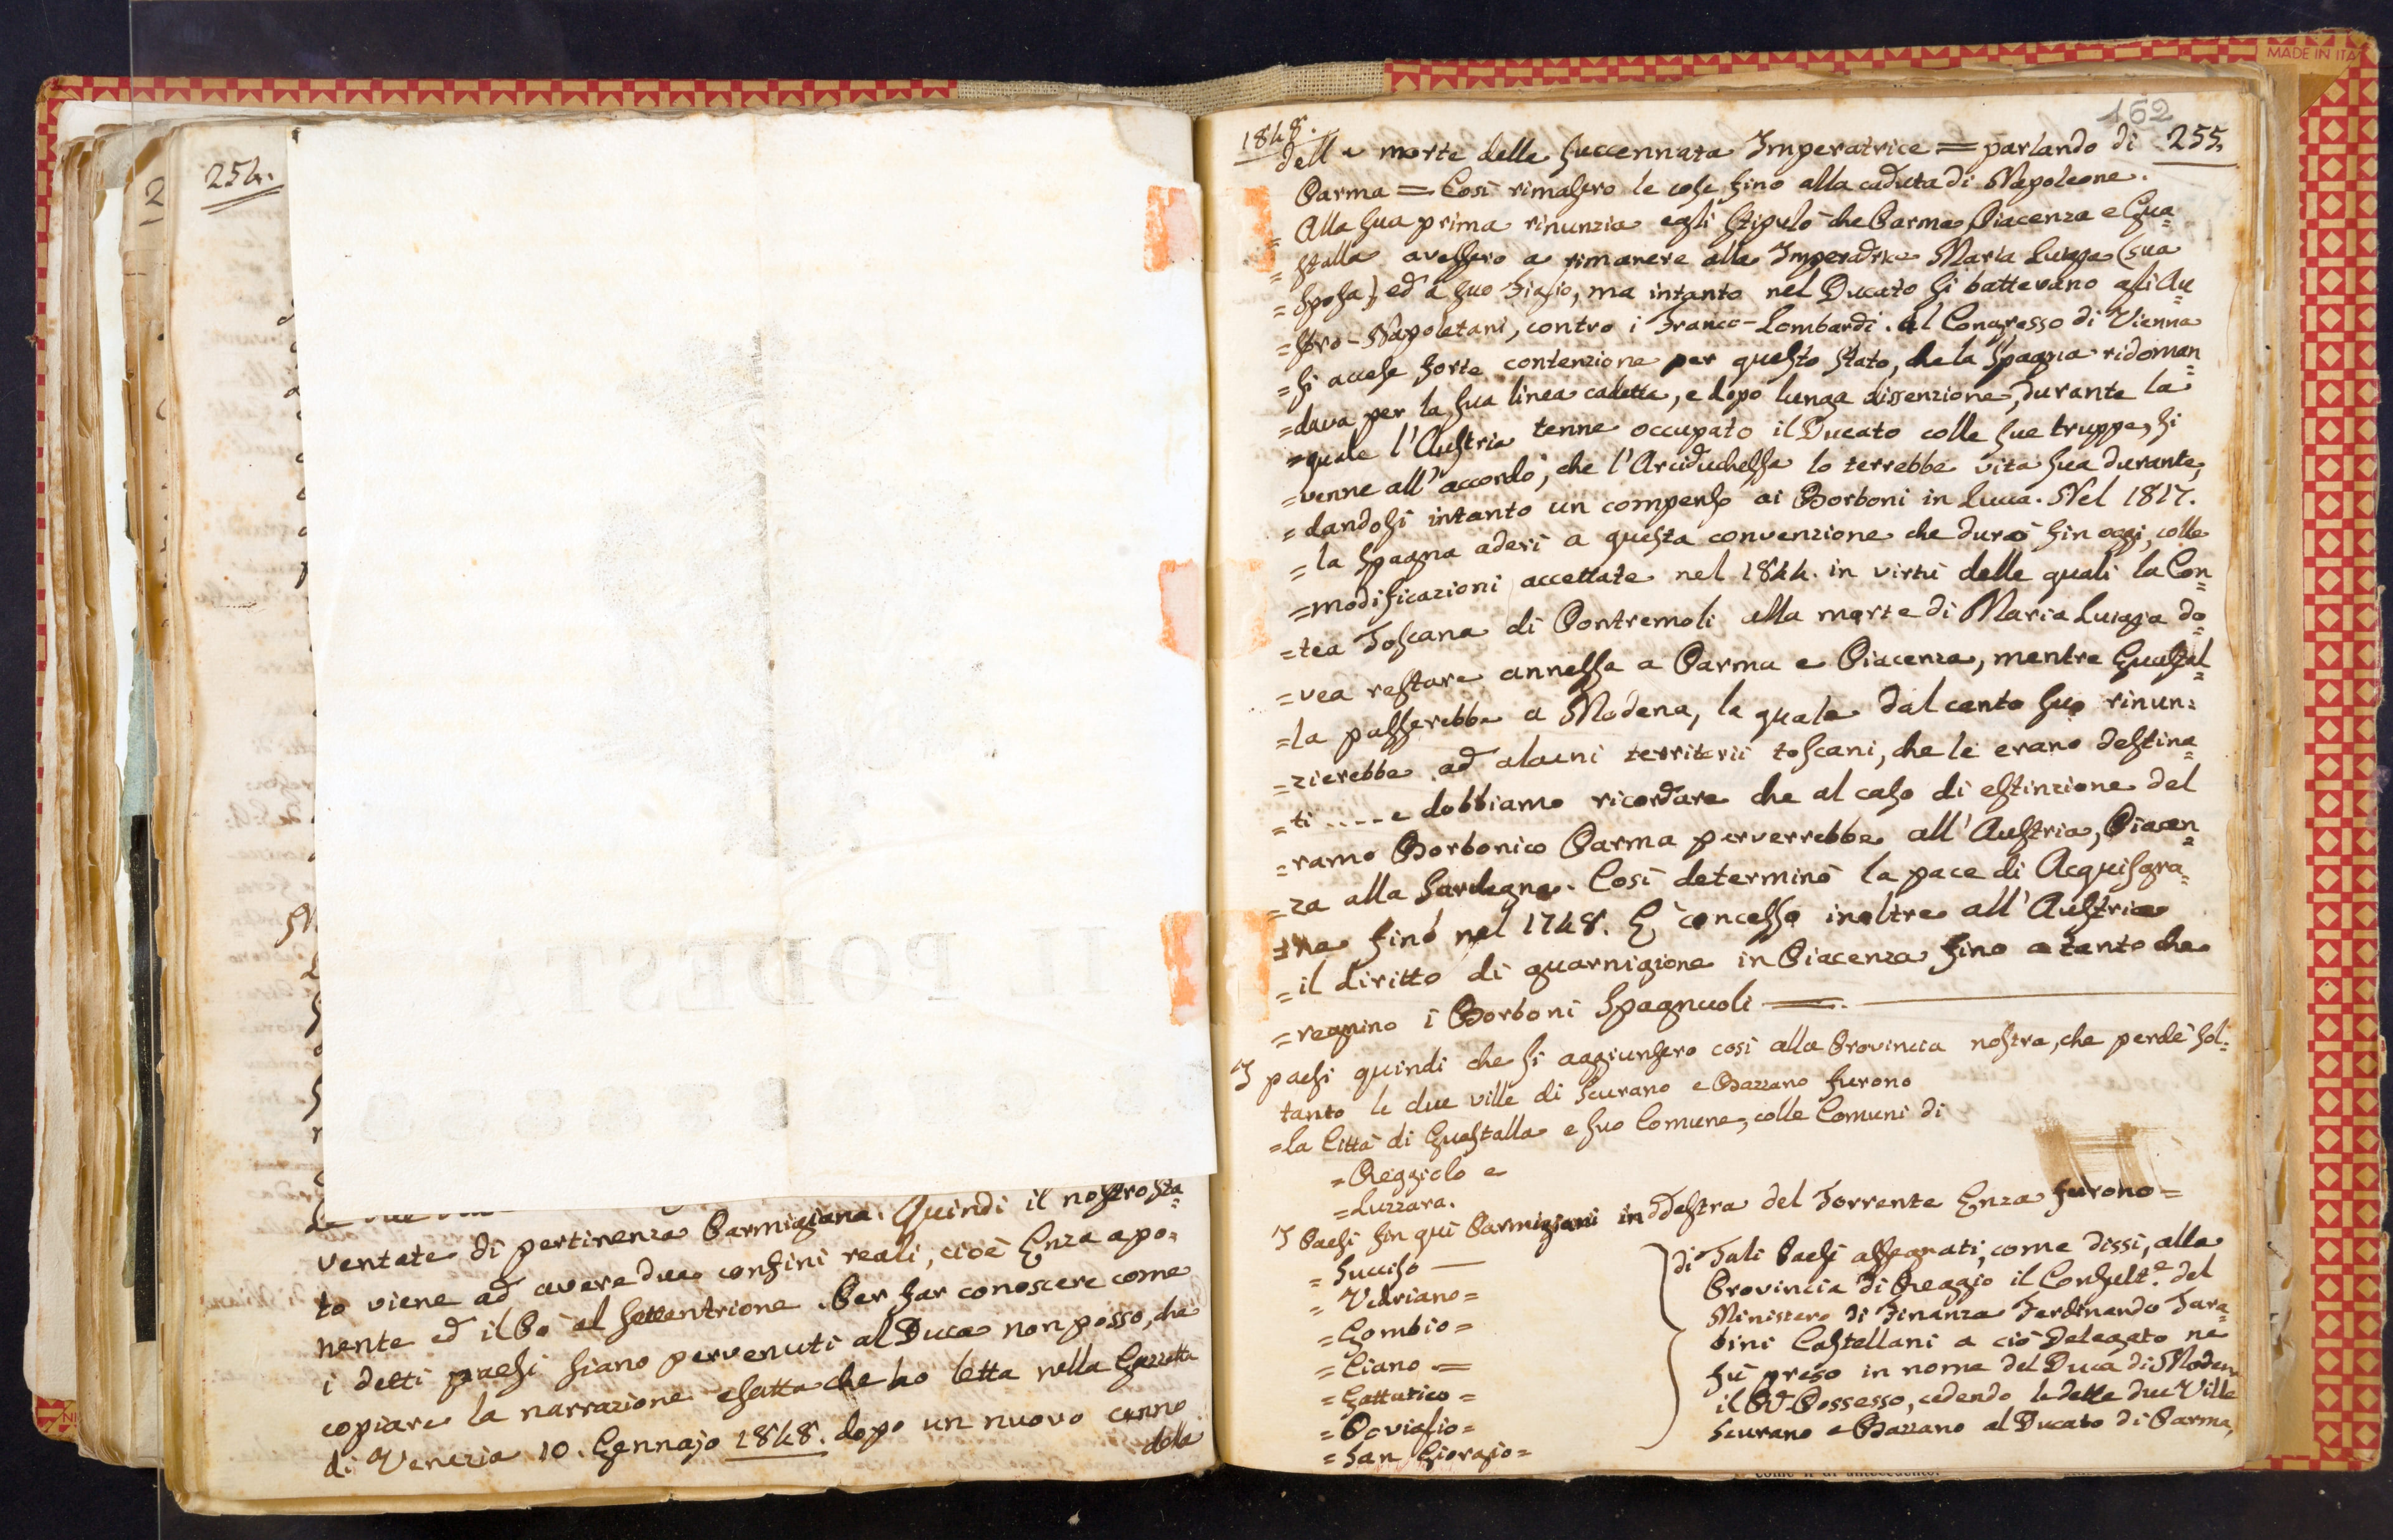 254.
ventate di pertinenza Parmigiana. Quindi il nostro Sta=
to viene ad avere due confini reali, cioè Enza a po=
nente ed il Pò al settentrione. Per far conoscere come
i detti paesi siano pervenuti al Duca non posso, che
copiare la narrazione esatta che ho letta nella Gazzetta
di Venezia 10. Gennajo 1848. dopo un nuovo cenno
della
IL PODESTA
162
1848.
255.
della morte delle succennata Imperatrice = parlando di
Parma = Così rimasero le cose fino alla caduta di Napoleone.
= Alla sua prima rinunzia egli stipulò che Parma Piacenza e Gua=
= stalla avessero a rimanere alla Imperadrice Maria Luigia (sua
= sposa) ed a suo figlio, ma intanto nel Ducato si battevano gli Au=
= stro-Napoletani, contro i Franco-Lombardi. Al Congresso di Vienna
= si accese forte contenzione per questo stato, che la Spagna ridoman=
= dava per la sua linea cadetta, e dopo lunga dissenzione, durante la
= quale l'Austria tenne occupato il Ducato colle sue truppe, si
= venne all'accordo, che l'Arciduchessa lo terrebbe vita sua durante,
= dandosi intanto un compenso ai Borboni in Lucca. Nel 1817.
= la Spagna aderì a questa convenzione che durò fin oggi, colle
= modificazioni accettate nel 1844. in virtù delle quali la Con=
= tea Toscana di Pontremoli alla morte di Maria Luigia do=
= vea restare annessa a Parma e Piacenza, mentre Guastal=
= la passerebbe a Modena, la quale dal canto suo rinun=
= zierebbe ad alcuni territorii toscani, che le erano destina=
= ti ..... e dobbiamo ricordare che al caso di estinzione del
= ramo Borbonico Parma perverrebbe all'Austria, Piacen=
= za alla Sardegna. Così determinò la pace di Acquisgra=
= na finò nel 1748. E' concesso inoltre all'Austria
= il diritto di guarnigione in Piacenza fino a tanto che
= regnino i Borboni Spagnuoli =.
I paesi quindi che si aggiunsero così alla Provincia nostra, che perdè sol=
tanto le due ville di Scurano e Bazzano furono
= La Città di Guastalla e suo Comune, colle Comuni di
= Reggiolo e
= Luzzara.
I Paesi fin qui Parmigiani in Ddestra del Torrente Enza furono =
= Succiso —
= Vedriano =
= Gombio =
= Ciano =
= Gattatico =
= Poviglio =
= San Giorgio =
di Tali Paesi assegnati, come dissi, alla
Provincia di Reggio il Consult.e del
Ministero di Finanza Ferdinando Tara=
bini Castellani a ciò Delegato ne
fù preso in nome del Duca di Modena
il Possesso, cedendo le dette due Ville
Scurano e Bazzano al Ducato di Parma,
MADE IN ITA